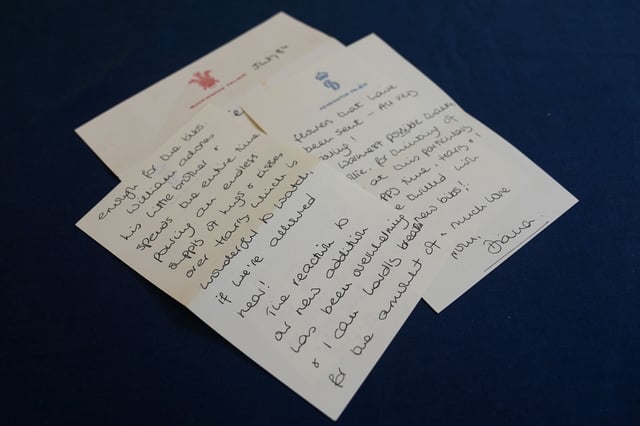 BUCKINGHAM PALACE
July 8th
KENSINGTON PALACE
flowers that have
been sent – All very
warmest possible thanks
for thinking of
at this particularly
time. Harry & I
thrilled with
new bibs!
much love
from,
Diana.
enough for the bibs.
William adores
his little brother &
spends the entire time
pouring an endless
supply of hugs & kisses
over Harry, which is
wonderful to watch,
if we're allowed
near!
The reaction to
our new addition
has been overwhelming
& I can hardly
for the amount of